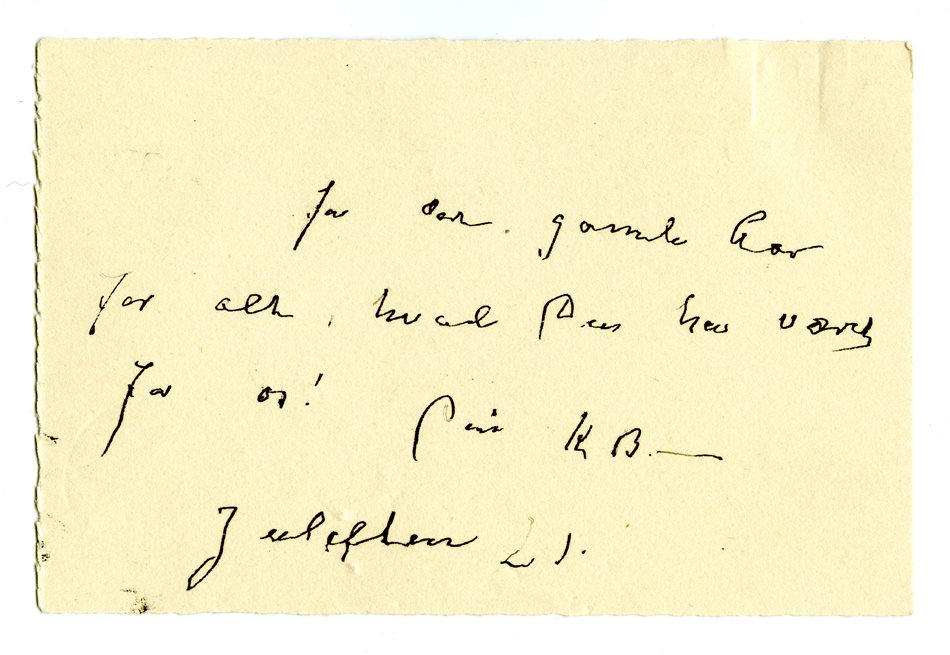 for den gamle Gar
for alt, hvad Du har været
for os! Din KB.
Juleaften 21.